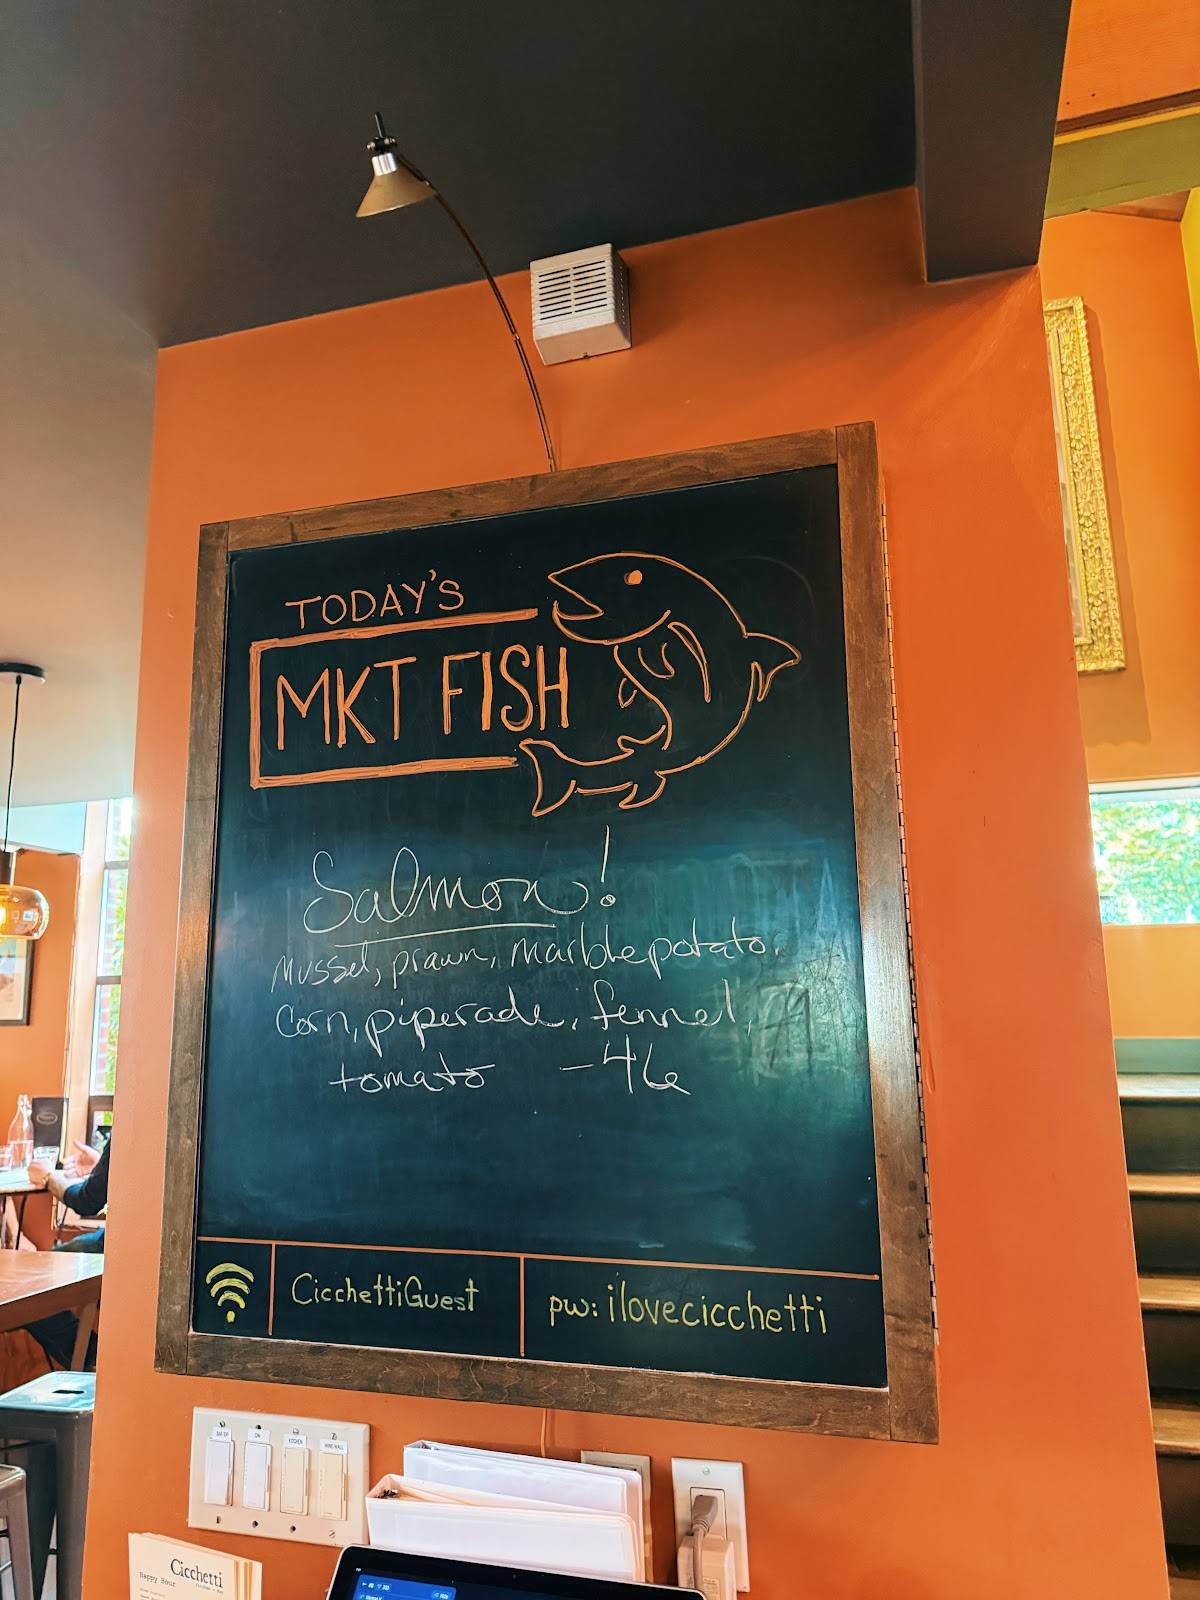 TODAY'S
MKT FISH
Salmon!
Mussel, prawn, marble potato,
Corn, piperade, fennel,
tomato – 46
CicchettiGuest
pw: ilovecicchetti
ON
KITCHEN
WINE WALL
Cicchetti
Kitchen + Bar
Happy Hour